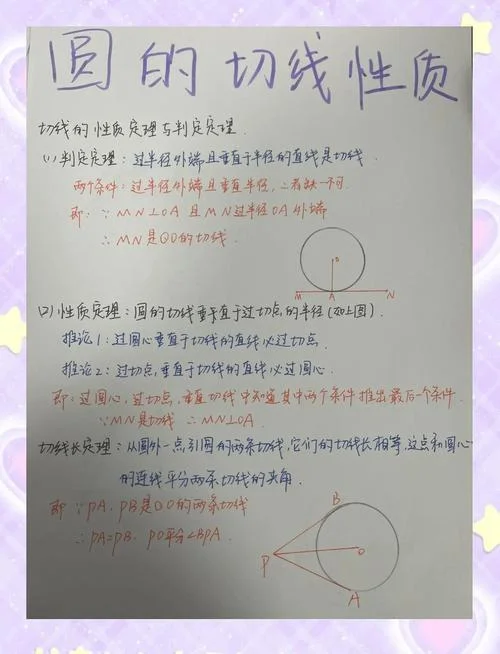 圆的切线性质
切线的性质定理与判定定理.
(1)判定定理：过半径外端且垂直于半径的直线是切线.
两个条件：过半径外端且垂直半径，二者缺一不可.
即：∵MN⊥OA且MN过半径OA外端
∴MN是⊙O的切线.
O
M A N
(2)性质定理：圆的切线垂直于过切点的半径(如上图).
推论1：过圆心垂直于切线的直线必过切点.
推论2：过切点，垂直于切线的直线必过圆心.
即：过圆心，过切点，垂直切线中知道其中两个条件推出最后一个条件.
∵MN是切线 ∴MN⊥OA.
切线长定理：从圆外一点，引圆的两条切线，它们的切线长相等，这点和圆心
的连线平分两条切线的夹角.
即 ∵PA.PB是⊙O的两条切线
∴PA=PB. PO平分∠BPA.
B
P O
A